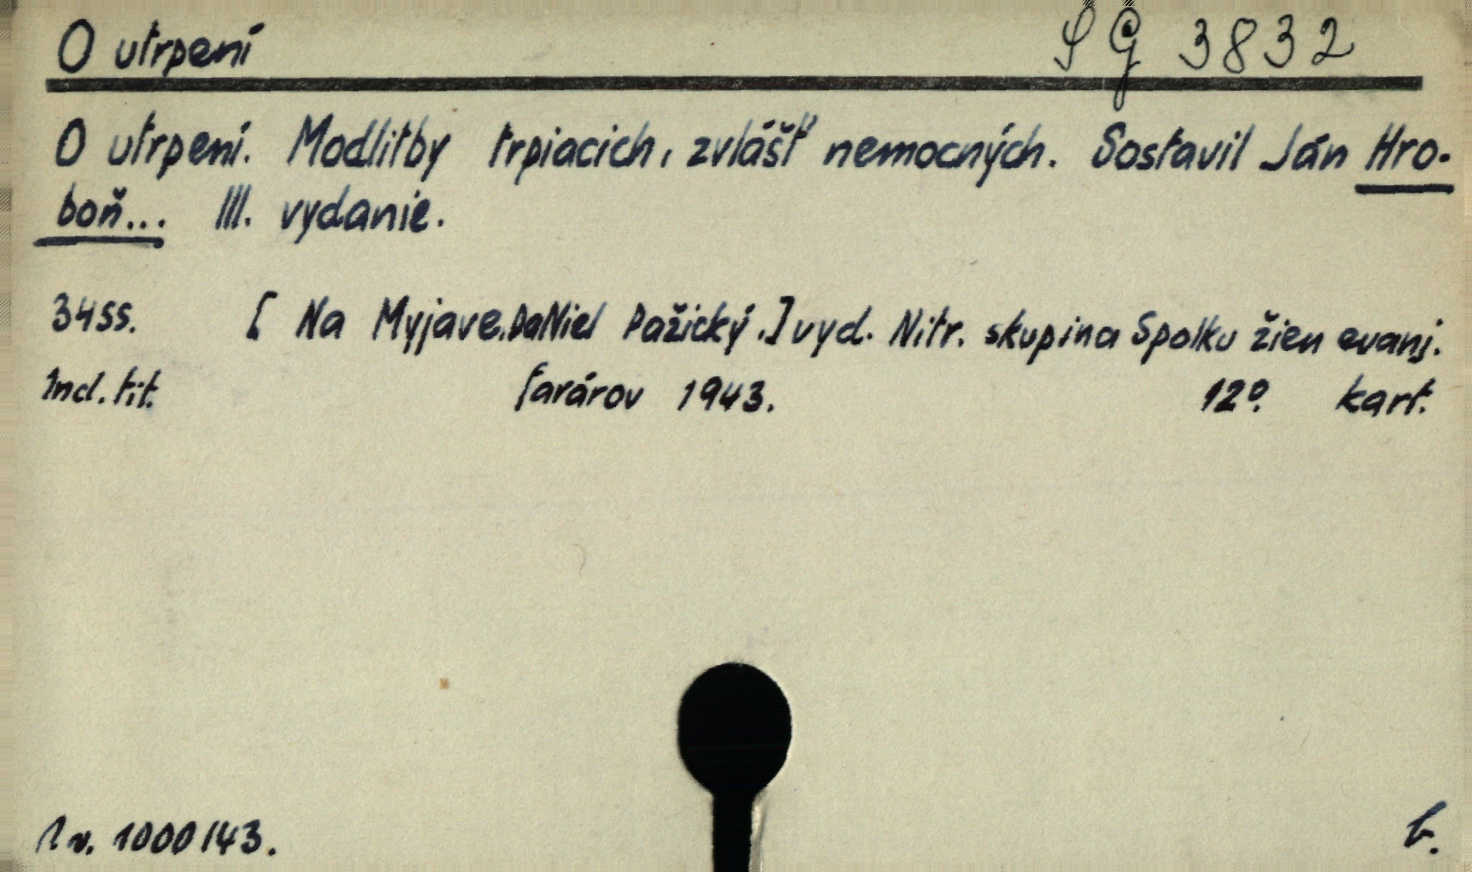 O utrpení SG 3832
O utrpení. Modlitby trpiacich, zvlášť nemocných. Sostavil Ján Hro-
boň... III. vydanie.
34 ss. [ Na Myjave. Daniel Pažický.] vyd. Nitr. skupina Spolku žien evanj.
Incl. tit. farárov 1943. 12º. kart.
1000/43. b.